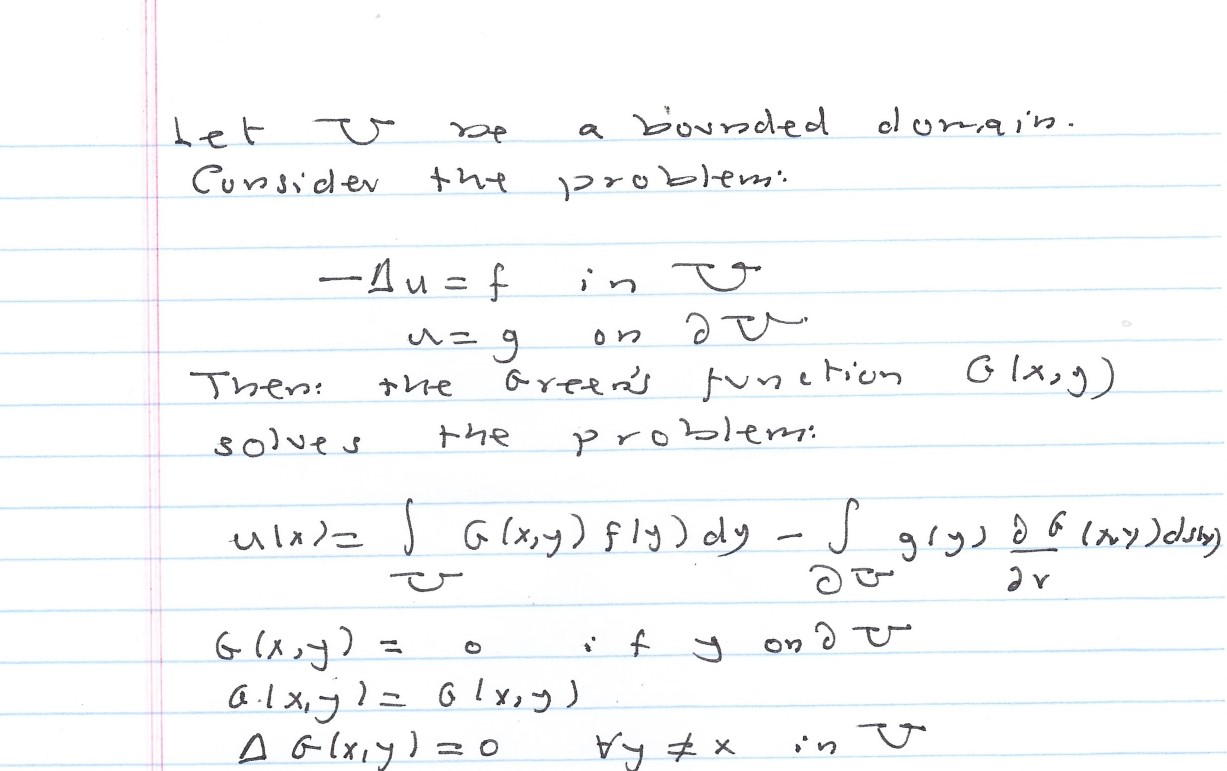 Let U be a bounded domain.
Consider the problem:
-Δu = f in U
u = g on ∂U
Then: the Green's function G(x,y)
solves the problem:
u(x) = ∫_U G(x,y) f(y) dy - ∫_∂U g(y) ∂G/∂ν (x,y) ds(y)
G(x,y) = 0 if y on ∂U
G(x,y) = G(x,y)
Δ G(x,y) = 0 ∀y ≠ x in U